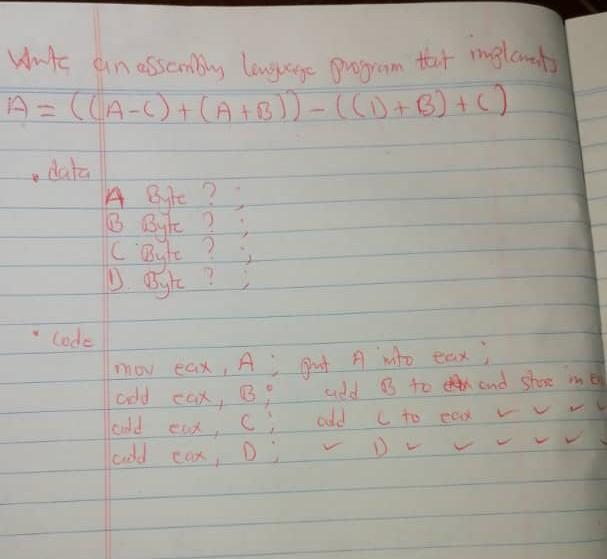 Write an assembly language program that implements
A = ((A-C) + (A+B)) - ((D+B) + C)
. data
A Byte ? ;
B Byte ? ;
C Byte ? ;
D. Byte ? ;
. Code
mov eax, A ; put A into eax ;
add eax, B ; add B to and store in
add eax, C ; add C to eax ✓ ✓ ✓ ✓
add eax, D ; ✓ D ✓ ✓ ✓ ✓ ✓ ✓